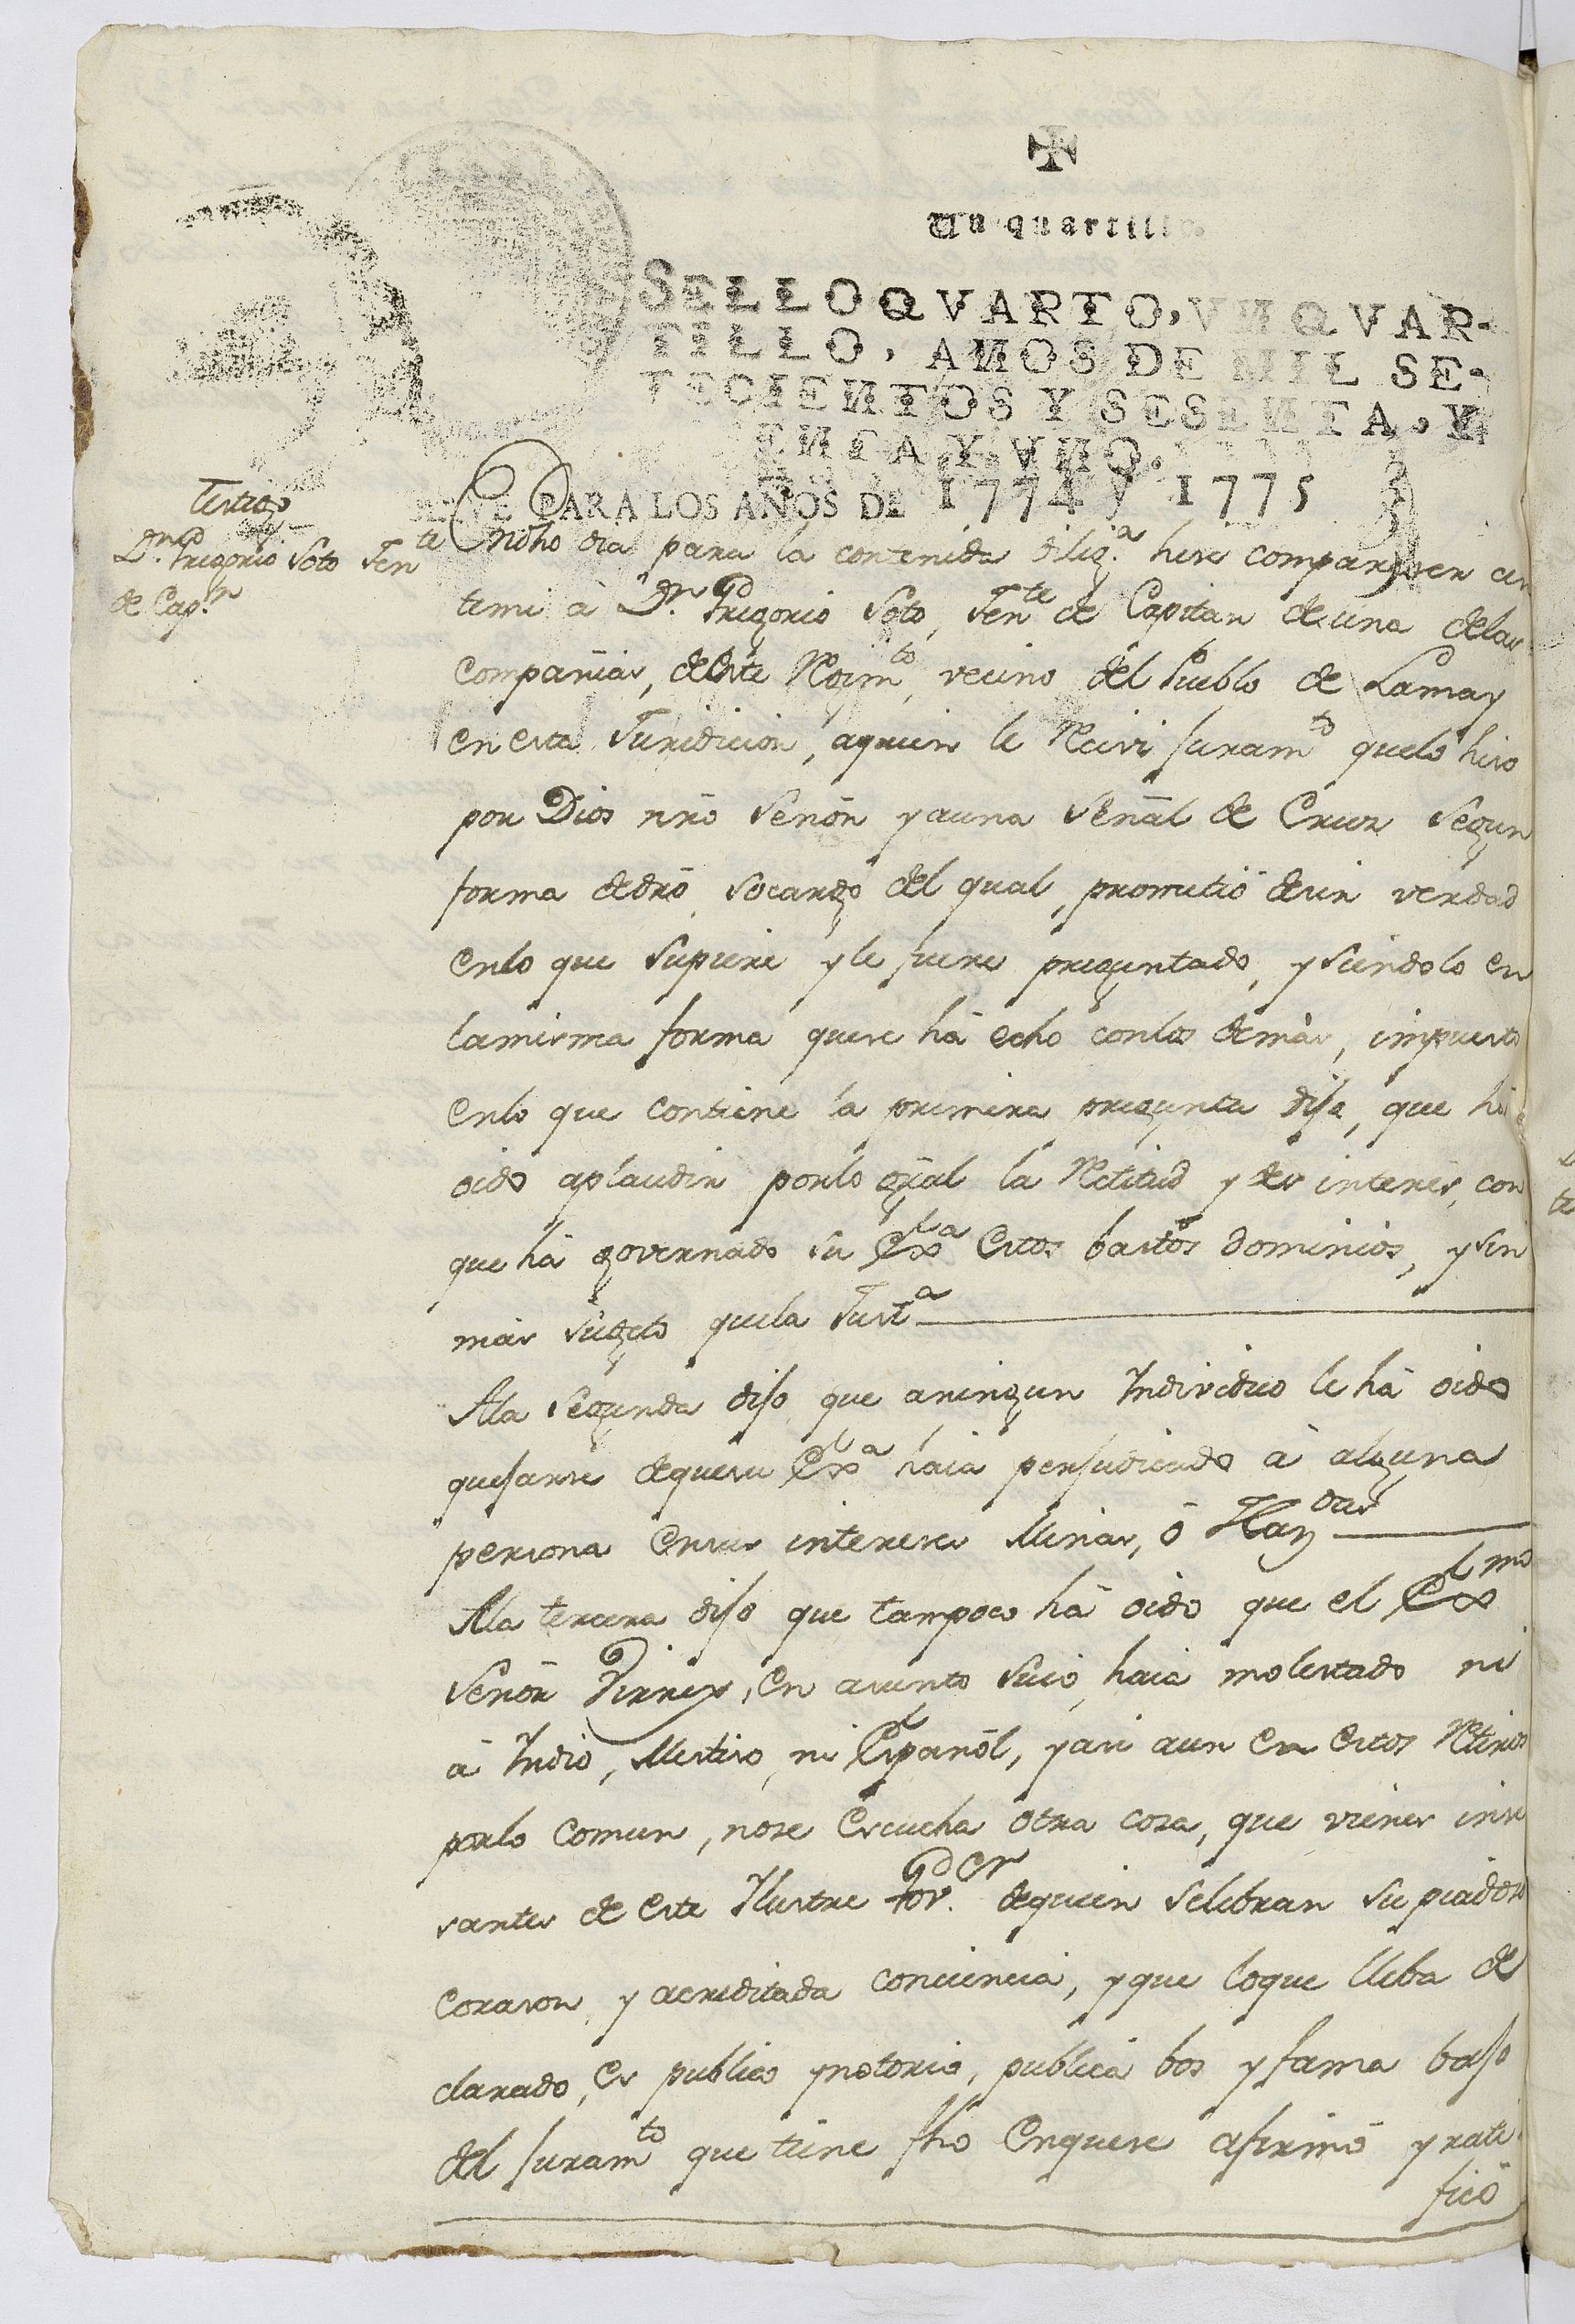 Un quartillo.
SELLO QVARTO, VN QVAR-
TILLO, AÑOS DE MIL SE-
TECIENTOS Y SESENTA, Y
SENTA Y VNO.
PARA LOS AÑOS DE 1774 y 1775
Testigo
Dn. Grigorio Soto Ten.te
de Cap.n
En dho dia para la contenida dilig.a hise comparecer an
temi â Dn. Grigorio Soto, Ten.te de Capitan de una delas
Compañias, de este Regim.to, vecino del Pueblo de Lamay
en esta Juridicion, aquien le Recivi juram.to quelo hiso
por Dios nrõ Señor y auna Señal de Cruz segun
forma de drõ, socargo del qual, prometiõ desir verdad
enlo que supiere y le fuere preguntado, y siendolo en
lamisma forma quese hâ echo conlos demàs, impuesto
enlo que contiene la primera pregunta dijo, que hâ
oido aplaudir porlo gral la Rectitud y des interès, con
que hâ governado su Ex.a estos bastos dominios, y sin
màs sugeto quela Just.a
Ala segunda dijo que aningun Individuo le hâ oido
quejarse dequesu Ex.a haia perjudicado â alguna
persona ensus intereses Minas, ô Haz.das
Ala tercera dijo que tampoco hâ oido que el Ex.mo
Señor Virrey, en asunto suio, haia molestado ni
â Indio, Mestiso, ni Español, y asi aun en estos Retiros
porlo comun, nose escucha otra cosa, que vienes inse
santes de este Ylustre Gov.or dequien selebran su piadoso
corason, y acreditada conciencia, y que loque lleba de
clarado, es publico y notorio, publica bos y fama bajo
del juram.to que tiene fho enquese afirmô y rati-
ficô